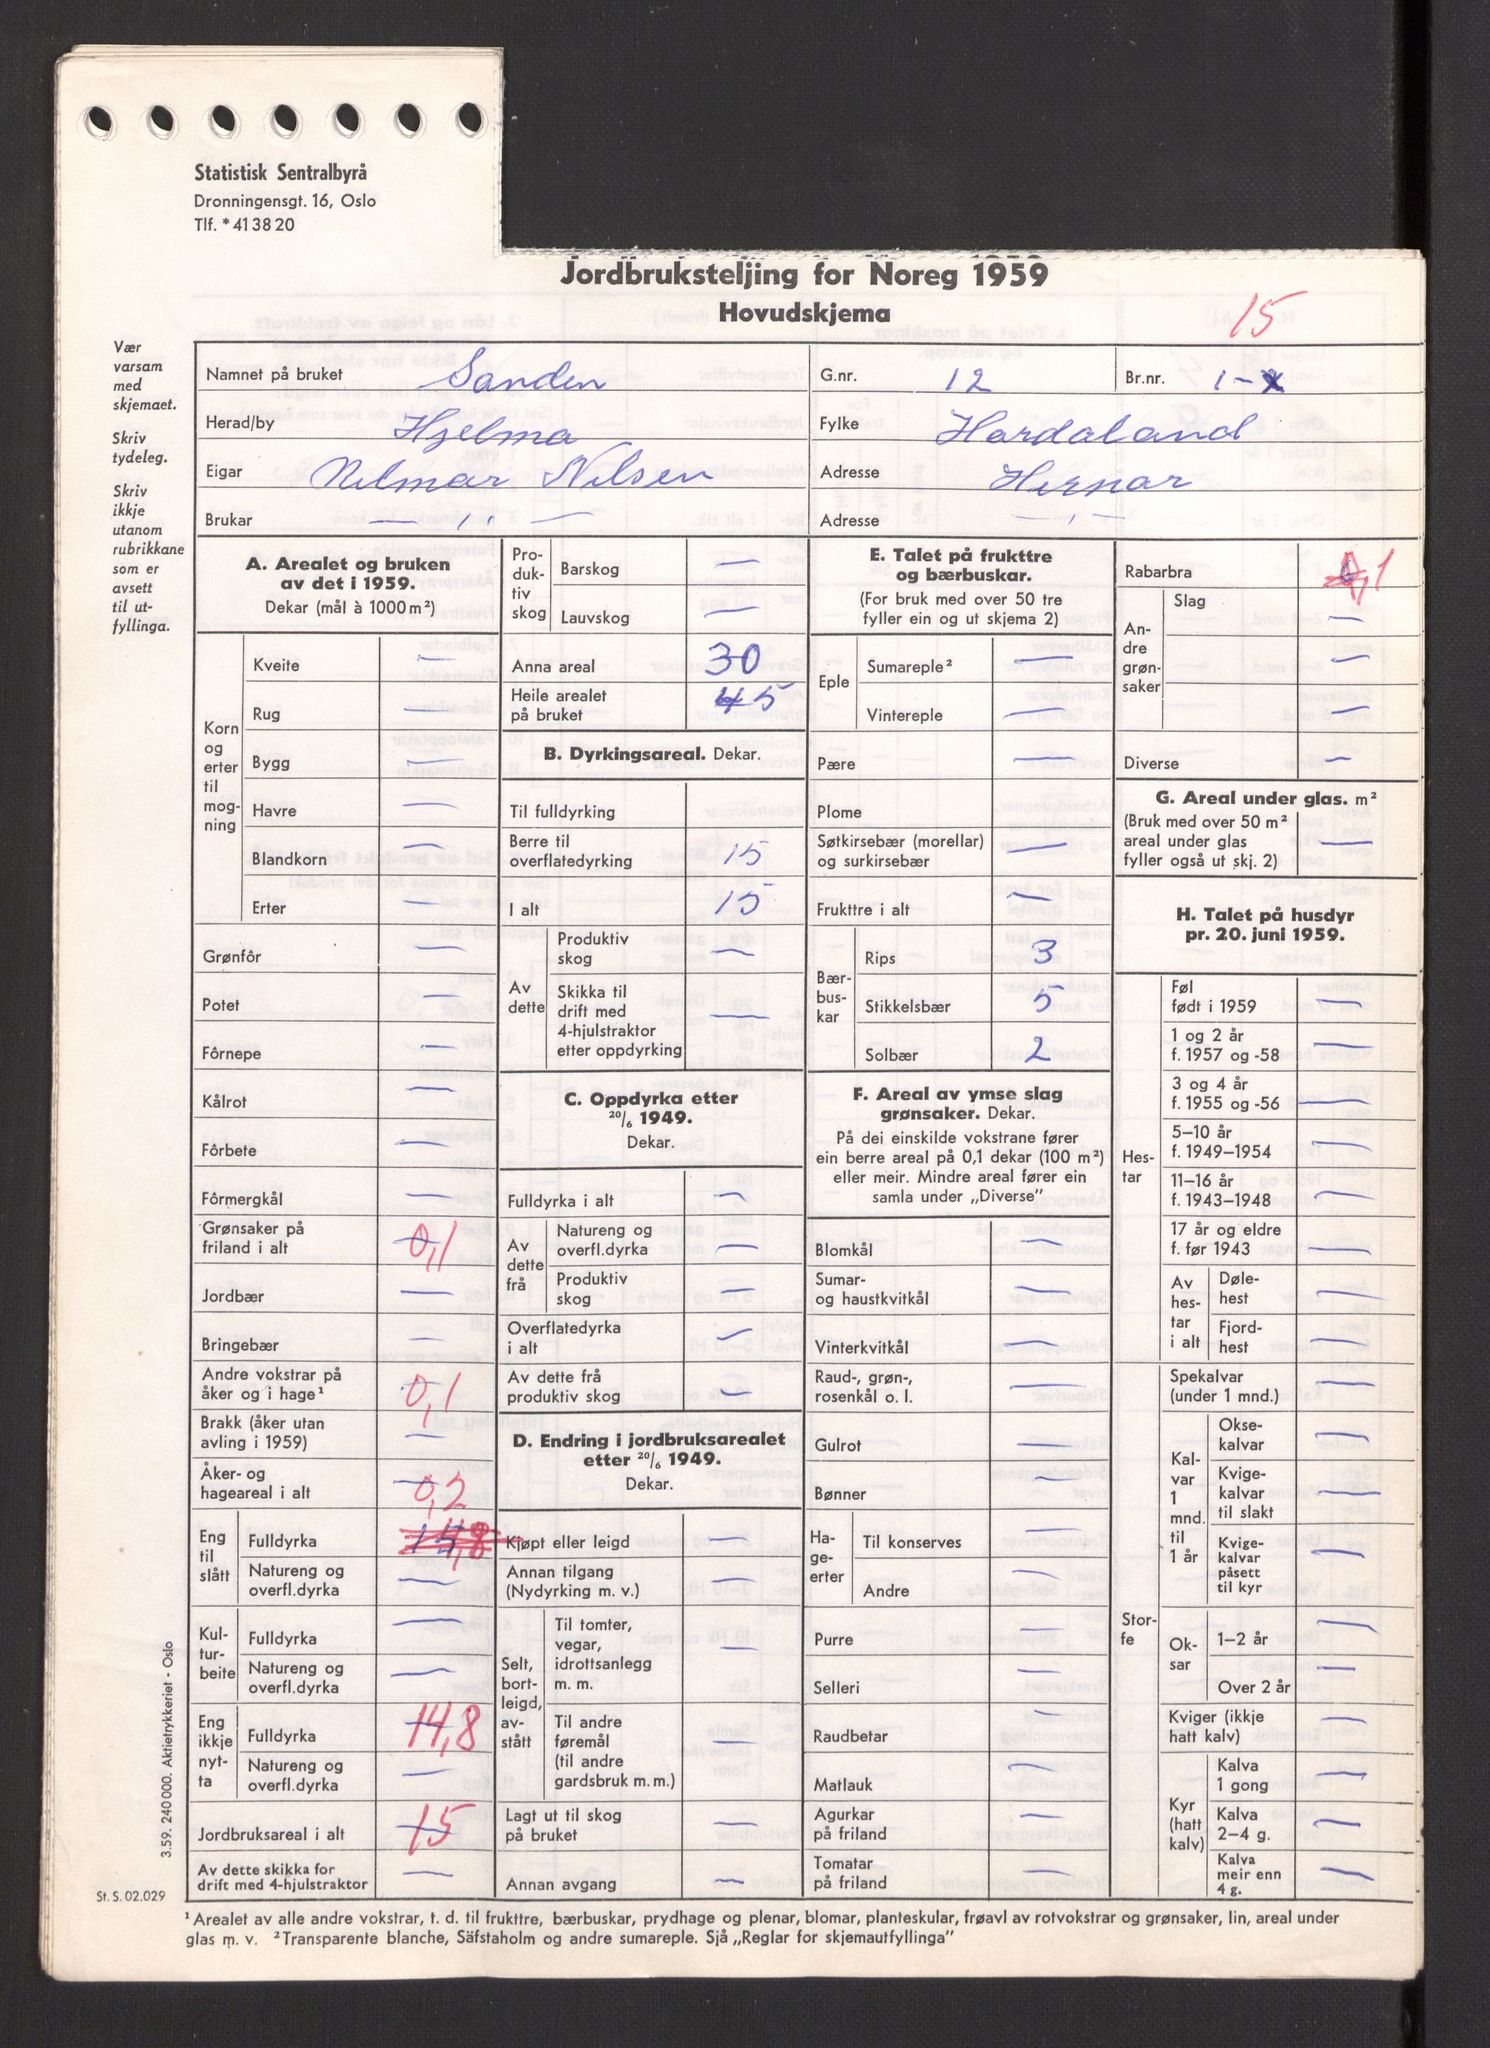 Statistisk Sentralbyrå
Dronningensgt. 16, Oslo
Tlf. *413820
Jordbruksteljing for Noreg 1959
Hovudskjema
15
Vær
varsam
med
skjemaet.
Skriv
tydeleg.
Skriv
ikkje
utanom
rubrikkane
som er
avsett
til ut-
fyllinga.
Namnet på bruket Sanden G.nr. 12 Br.nr. 1-
Herad/by Hjelma Fylke Hordaland
Eigar Nilmar Nilsen Adresse Hernar
Brukar — " — Adresse — " —
A. Arealet og bruken
av det i 1959.
Dekar (mål à 1000 m²)
Korn
og
erter
til
mog-
ning
Kveite —
Rug —
Bygg —
Havre —
Blandkorn —
Erter —
Grønfôr —
Potet —
Fôrnepe —
Kålrot —
Fôrbete —
Fôrmergkål —
Grønsaker på
friland i alt 0,1
Jordbær —
Bringebær —
Andre vokstrar på
åker og i hage¹ 0,1
Brakk (åker utan
avling i 1959) —
Åker- og
hageareal i alt 0,2
Eng
til
slått
Fulldyrka
Natureng og
overfl.dyrka —
Kul-
tur-
beite
Fulldyrka —
Natureng og
overfl.dyrka —
Eng
ikkje
nyt-
ta
Fulldyrka 14,8
Natureng og
overfl.dyrka —
Jordbruksareal i alt 15
Av dette skikka for
drift med 4-hjulstraktor —
Pro-
duk-
tiv
skog
Barskog —
Lauvskog —
Anna areal 30
Heile arealet
på bruket 45
B. Dyrkingsareal. Dekar.
Til fulldyrking
Berre til
overflatedyrking 15
I alt 15
Av
dette
Produktiv
skog —
Skikka til
drift med
4-hjulstraktor
etter oppdyrking —
C. Oppdyrka etter
20/6 1949.
Dekar.
Fulldyrka i alt —
Av
dette
frå
Natureng og
overfl.dyrka —
Produktiv
skog —
Overflatedyrka
i alt —
Av dette frå
produktiv skog —
D. Endring i jordbruksarealet
etter 20/6 1949.
Dekar.
Kjøpt eller leigd —
Annan tilgang
(Nydyrking m. v.) —
Selt,
bort-
leigd,
av-
stått
Til tomter,
vegar,
idrottsanlegg
m. m. —
Til andre
føremål
(til andre
gardsbruk m. m.) —
Lagt ut til skog
på bruket —
Annan avgang —
E. Talet på frukttre
og bærbuskar.
(For bruk med over 50 tre
fyller ein og ut skjema 2)
Eple
Sumareple² —
Vintereple —
Pære —
Plome
Søtkirsebær (morellar)
og surkirsebær —
Frukttre i alt —
Bær-
bus-
kar
Rips 3
Stikkelsbær 5
Solbær 2
F. Areal av ymse slag
grønsaker. Dekar.
På dei einskilde vokstrane fører
ein berre areal på 0,1 dekar (100 m²)
eller meir. Mindre areal fører ein
samla under „Diverse”
Blomkål —
Sumar-
og haustkvitkål —
Vinterkvitkål —
Raud-, grøn-,
rosenkål o. l. —
Gulrot —
Bønner —
Ha-
ge-
erter
Til konserves —
Andre —
Purre —
Selleri —
Raudbetar —
Matlauk —
Agurkar
på friland —
Tomatar
på friland —
Rabarbra 0,1
An-
dre
grøn-
saker
Slag
—
—
—
Diverse —
G. Areal under glas. m²
(Bruk med over 50 m²
areal under glas
fyller også ut skj. 2) —
H. Talet på husdyr
pr. 20. juni 1959.
Hes-
tar
Føl
født i 1959 —
1 og 2 år
f. 1957 og -58 —
3 og 4 år
f. 1955 og -56 —
5–10 år
f. 1949–1954 —
11–16 år
f. 1943–1948 —
17 år og eldre
f. før 1943 —
Av
hes-
tar
i alt
Døle-
hest —
Fjord-
hest —
Stor-
fe
Spekalvar
(under 1 mnd.) —
Kal-
var
1
mnd.
til
1 år
Okse-
kalvar —
Kvige-
kalvar
til slakt —
Kvige-
kalvar
påsett
til kyr —
Ok-
sar
1–2 år —
Over 2 år —
Kviger (ikkje
hatt kalv) —
Kyr
(hatt
kalv)
Kalva
1 gong —
Kalva
2–4 g. —
Kalva
meir enn
4 g. —
3.59. 240 000. Aktietrykkeriet - Oslo
St. S. 02.029
¹ Arealet av alle andre vokstrar, t. d. til frukttre, bærbuskar, prydhage og plenar, blomar, planteskular, frøavl av rotvokstrar og grønsaker, lin, areal under
glas m. v. ² Transparente blanche, Säfstaholm og andre sumareple. Sjå „Reglar for skjemautfyllinga”